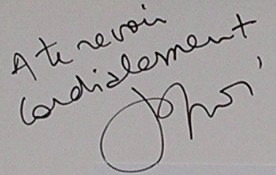 A te revoir
Cordialement